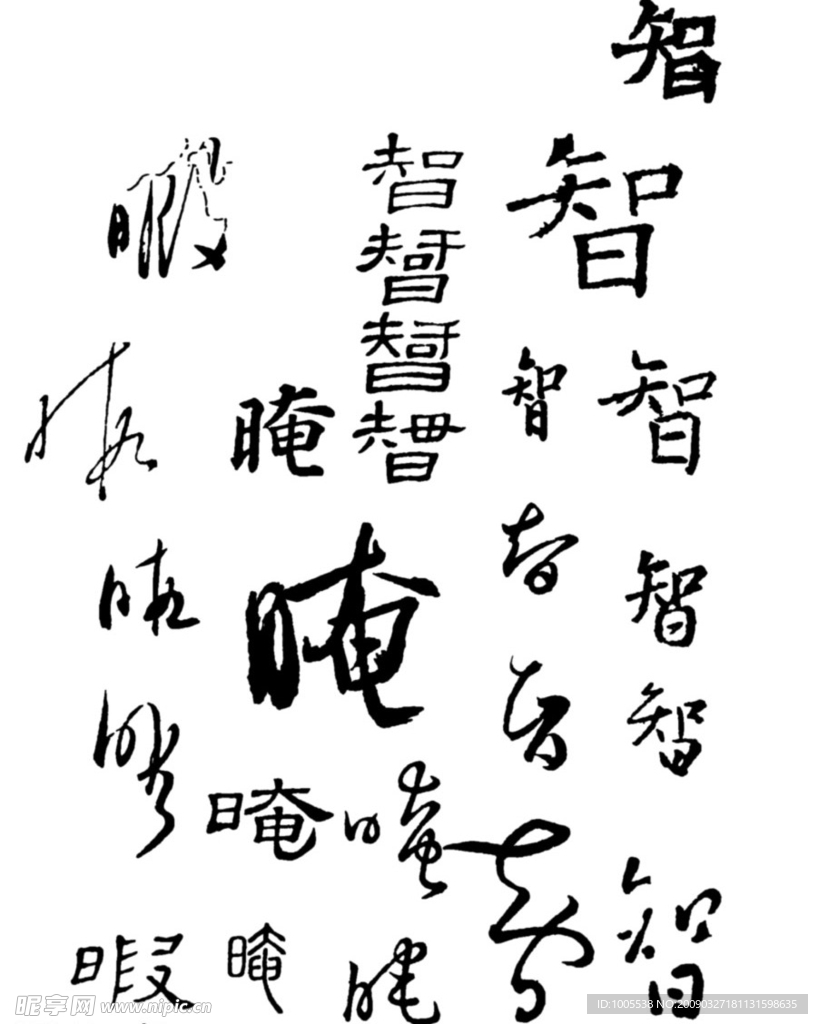 智智智智智
智智智智智
智智智智晻晻
晻晻晻晻
暇暇暇暇暇
昵享网 www.nipic.cn
ID:1005538 NO:20090327181131598635